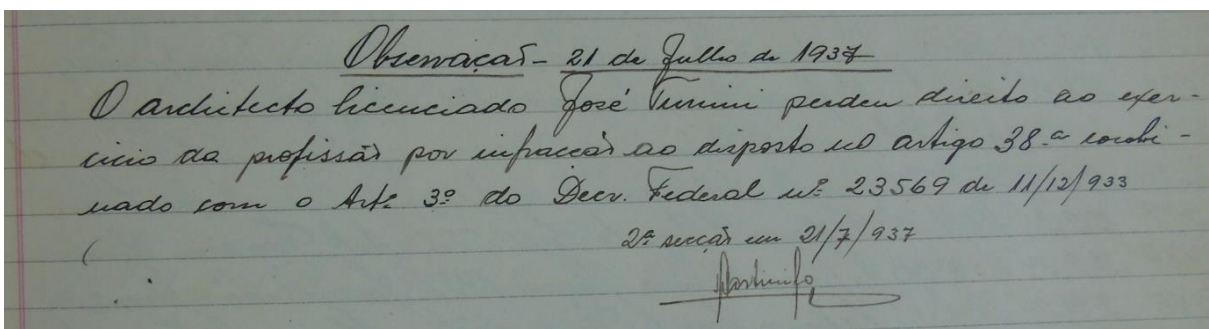 Observação - 21 de Julho de 1937
O architecto licenciado José Turini perdeu direito ao exer-
cicio da profissão por infracção ao disposto no artigo 38.º combi-
nado com o Art.º 3º do Decr. Federal nº 23569 de 11/12/933
2ª secção em 21/7/937